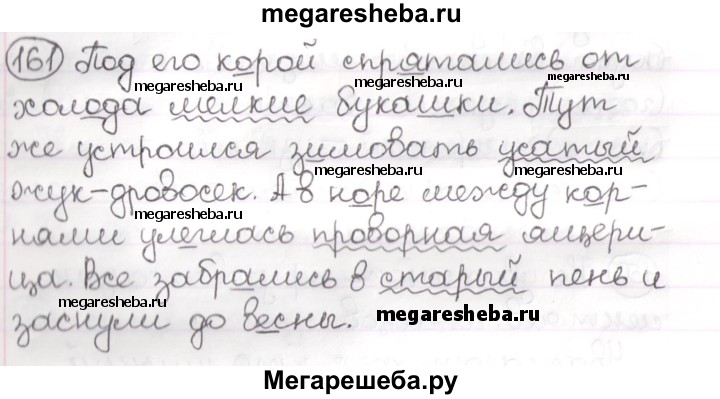 megaresheba.ru
161 Под его корой спрятались от
megaresheba.ru megaresheba.ru
холода мелкие букашки. Тут
megaresheba.ru
же устроился зимовать усатый
megaresheba.ru megaresheba.ru
жук-дровосек. А в норе между кор-
megaresheba.ru
нами улеглась проворная ящери-
megaresheba.ru
ца. Все забрались в старый пень и
megaresheba.ru
заснули до весны.
megaresheba.ru
Мегарешеба.ру